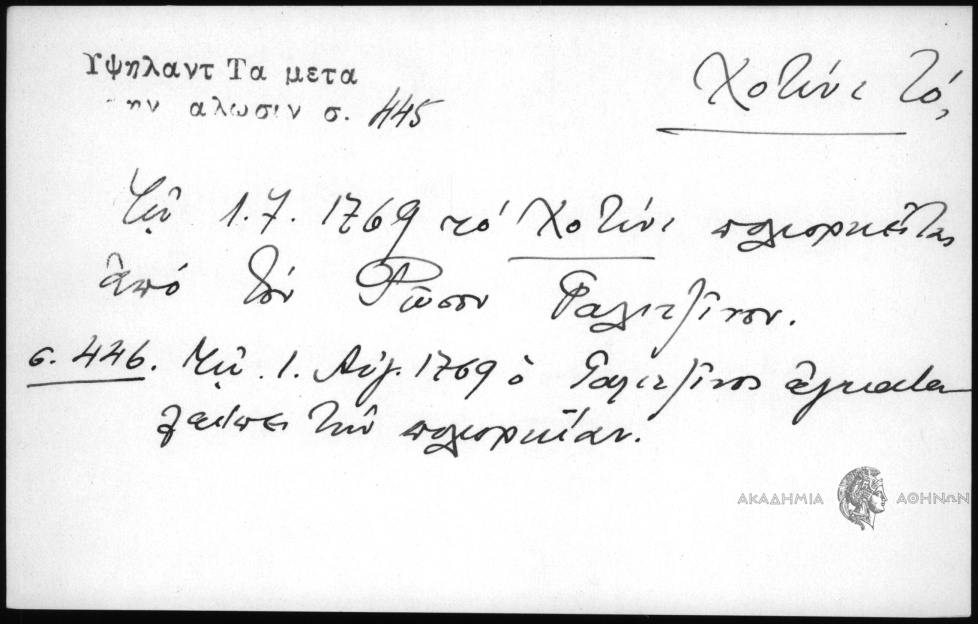 Υψηλαντ Τα μετα
ην αλωσιν σ. 445
Χοτίνι τό,
Τῇ 1.7.1769 τό Χοτίνι πολιορκεῖται
ἀπό τόν Ρῶσον Γαλιτζῖνον.
σ. 446. Τῇ 1. Αὐγ. 1769 ὁ Γαλιτζῖνος ἐγκατα
λείπει τήν πολιορκίαν.
ΑΚΑΔΗΜΙΑ ΑΘΗΝΩΝ